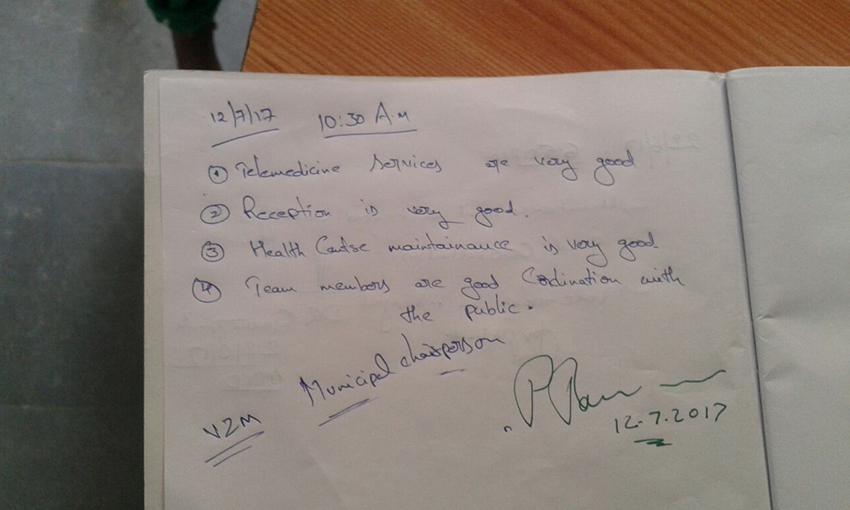 12/7/17 10:30 A.M
① Telemedicine services are very good
② Reception is very good.
③ Health Centre maintainance is very good
④ Team members are good Cordination with
the public.
Municipal chairperson
VZM
12.7.2017